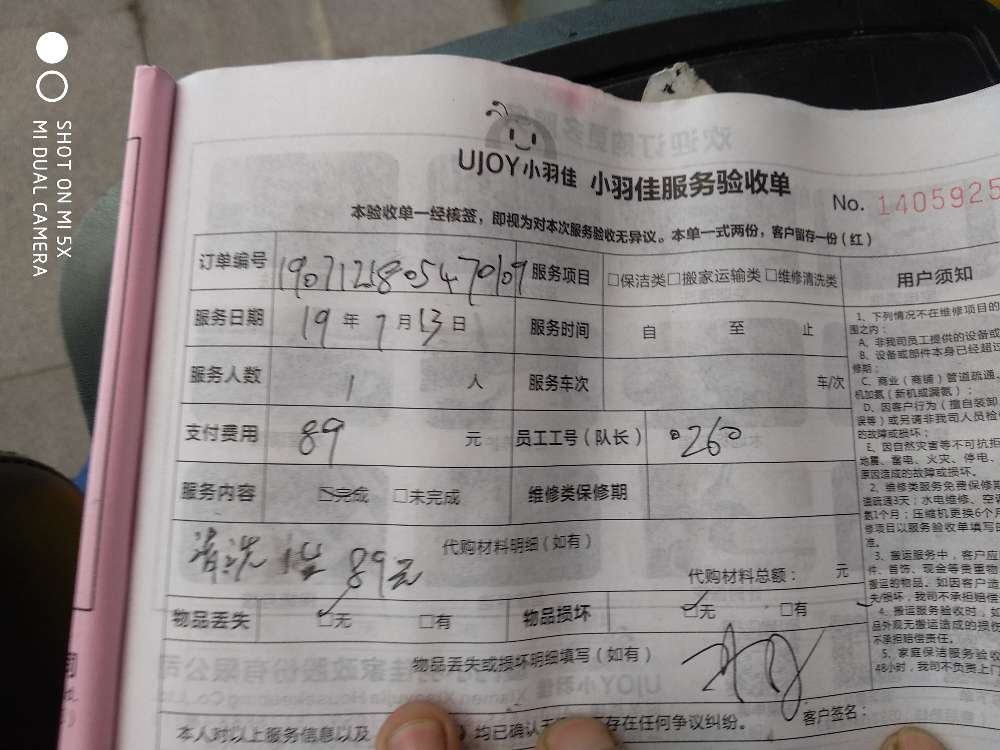 SHOT ON MI 5X
MI DUAL CAMERA
UJOY小羽佳 小羽佳服务验收单
No. 1405925
本验收单一经核签，即视为对本次服务验收无异议。本单一式两份，客户留存一份（红）
订单编号 1907121805470109 服务项目 □保洁类□搬家运输类□维修清洗类
服务日期 19 年 7 月 13 日 服务时间 自 至 止
服务人数 1 人 服务车次 车/次
支付费用 89 元 员工工号（队长） 0260
服务内容 ☑完成 □未完成 维修类保修期
清洗 89元 代购材料明细（如有）
代购材料总额： 元
物品丢失 ☑无 □有 物品损坏 ☑无 □有
物品丢失或损坏明细填写（如有）
客户签名：
本人对以上服务信息以及
均已确认
存在任何争议纠纷。
用户须知
1、下列情况不在维修项目的
围之内：
A、非我司员工提供的设备或
B、设备或部件本身已经超过
修期；
C、商业（商铺）管道疏通、
机加氨（新机或漏氨）；
D、因客户行为（擅自装卸
误等）或另请非我司人员检
的故障或损坏；
E、因自然灾害等不可抗拒
地震、雷电、火灾、停电、
原因造成的故障或损坏。
2、维修类服务免费保修期
道疏通3天；水电维修、空
氨1个月；压缩机更换6个月
修项目以服务验收单填写
准。
3、搬运服务中，客户应
件、首饰、现金等贵重物
搬运的物品，如因客户造
失/损坏，我司不承担赔偿
4、搬运服务验收时，如
品外观无搬运造成的损伤
不承担赔偿责任。
5、家庭保洁服务验收
48小时，我司不负责上门